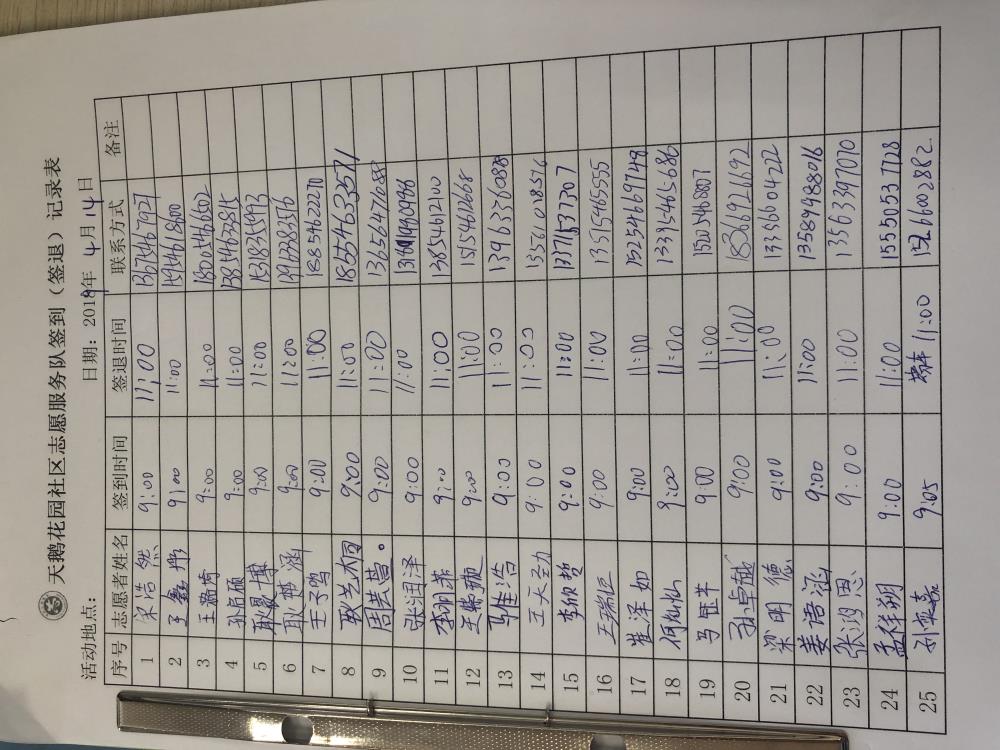 天鹅花园社区志愿服务队签到（签退）记录表
活动地点： 日期：2019年 4月14日
序号 志愿者姓名 签到时间 签退时间 联系方式 备注
1 宋浩然 9:00 11:00 13675467927
2 9:00 11:00
3 王 9:00 11:00 18005466602
4 孙 9:00 11:00 13854663815
5 博 9:00 11:00
6 耿 涵 9:00 11:00
7 王子 9:00 11:00 18854622270
8 9:00 11:00 1855463571
9 周芸 9:00 11:00
10 张润泽 9:00 11:00
11 李 9:00 11:00 13854612100
12 9:00 11:00 15154662668
13 浩 9:00 11:00 13963376088
14 王天劲 9:00 11:00 13576018576
15 李 哲 9:00 11:00 13715373707
16 王瑞恒 9:00 11:00 13515465555
17 崔泽如 9:00 11:00 15254669749
18 何灿灿 9:00 11:00 13395465686
19 马 9:00 11:00
20 孙卓越 9:00 11:00 18366926692
21 梁明德 9:00 11:00 13356600422
22 姜语涵 9:00 11:00 13589988016
23 张鸿思 9:00 11:00 13563397070
24 孟祥朔 9:00 11:00 15550537728
25 孙 嘉 9:05 11:00 15266002882